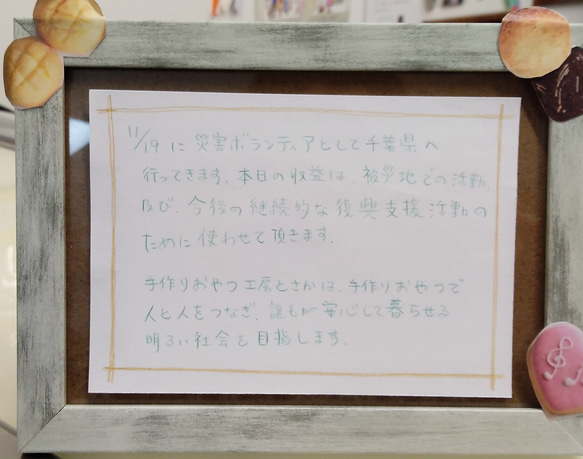 11/19 に 災害ボランティアとして千葉県へ
行ってきます。本日の収益は、被災地での活動、
及び、今後の継続的な復興支援活動の
ために使わせて頂きます。
手作りおやつ工房とさかは、手作りおやつで
人と人をつなぎ、誰もが安心して暮らせる
明るい社会を目指します。